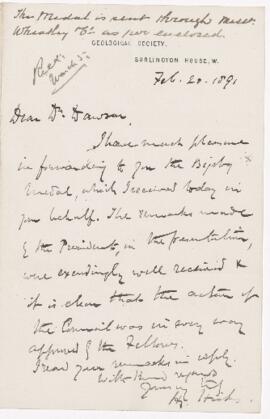 The Medal is sent through Messrs
Wheatley & Co as per enclosed.
GEOLOGICAL SOCIETY,
BURLINGTON HOUSE, W.
Recd.
March 5
Feb. 20. 1891
Dear Dr. Dawson
I have much pleasure
in forwarding to you the Bigsby
Medal, which I received today on
your behalf. The remarks made
by the President, in the presentation,
were exceedingly well received &
it is clear that the action of
the Council was in every way
approved by the Fellows.
I read your remarks in reply.
With kind regards
Yours
Hicks